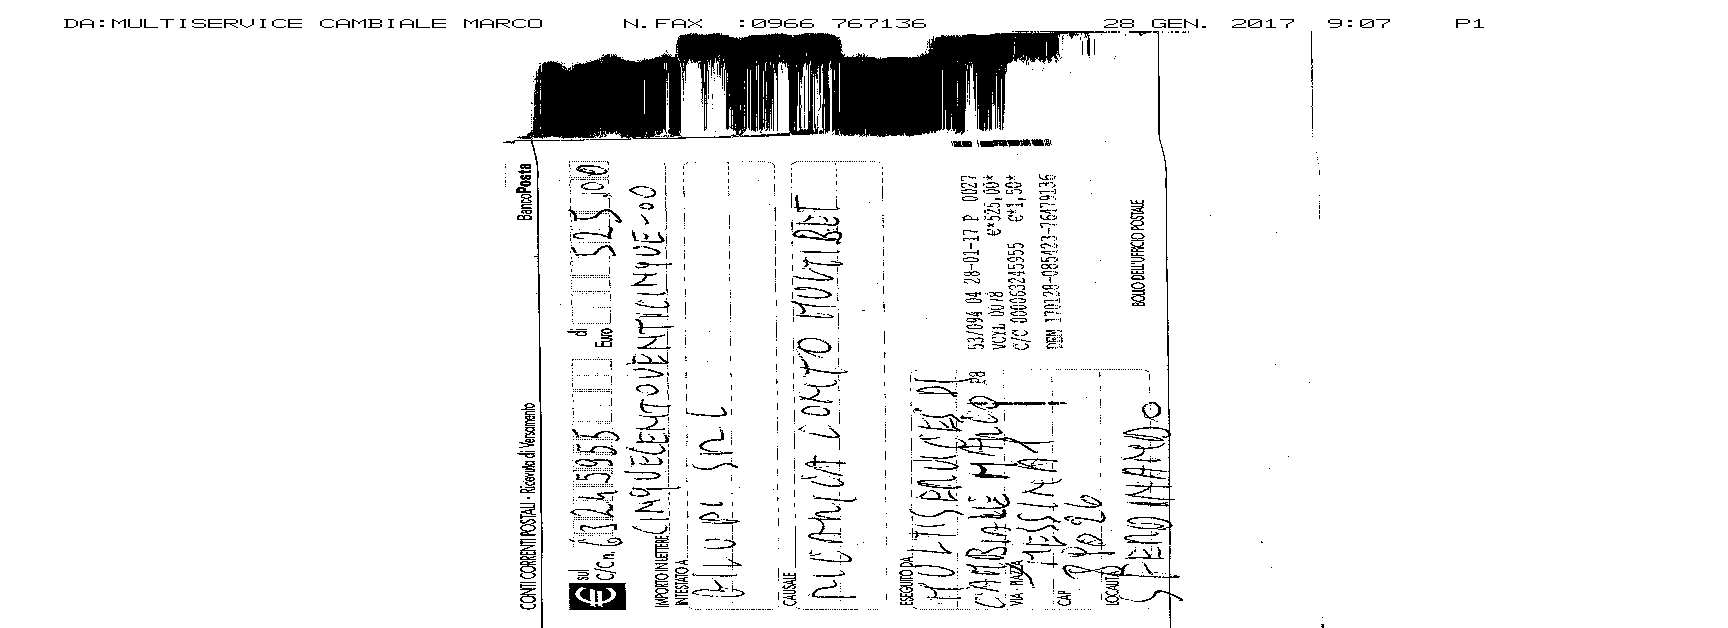 DA:MULTISERVICE CAMBIALE MARCO N.FAX :0966 767136 28 GEN. 2017 9:07 P1
CONTI CORRENTI POSTALI - Ricevuta di Versamento BancoPosta
sul C/C n. 63245955 di Euro 525,00
IMPORTO IN LETTERE CINQUECENTOVENTICINQUE-00
INTESTATO A
SRL
CAUSALE
RICARICA CONTO MULTIBET
ESEGUITO DA
MULTISERVICES DI
CAMBIALE MARCO
VIA - PIAZZA MESSINA 1
CAP 89026
LOCALITÀ S FERDINANDO
53/094 04 28-01-17 P 0027
VCYL 0078 €*525,00*
C/C 000063245955 €*1,50*
P8
BOLLO DELL'UFFICIO POSTALE